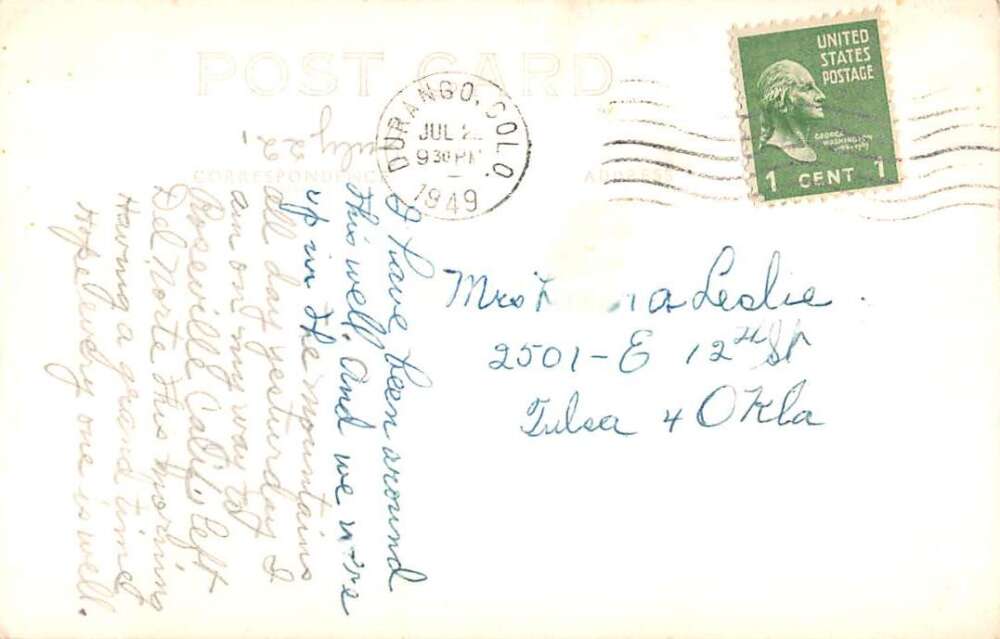 POST CARD
CORRESPONDENCE
ADDRESS
DURANGO, COLO.
JUL 2
9 30 PM
1949
UNITED
STATES
POSTAGE
GEORGE
WASHINGTON
1 CENT 1
July 22.
I have been around
this well. And we were
up in the mountains
all day yesturday I
am on my way to
Roseville Calif. left
Del Norte this morning
Having a grand time
Hope evdry one is well.
Mrs Leslie
2501-E 12th St
Tulsa 4 Okla